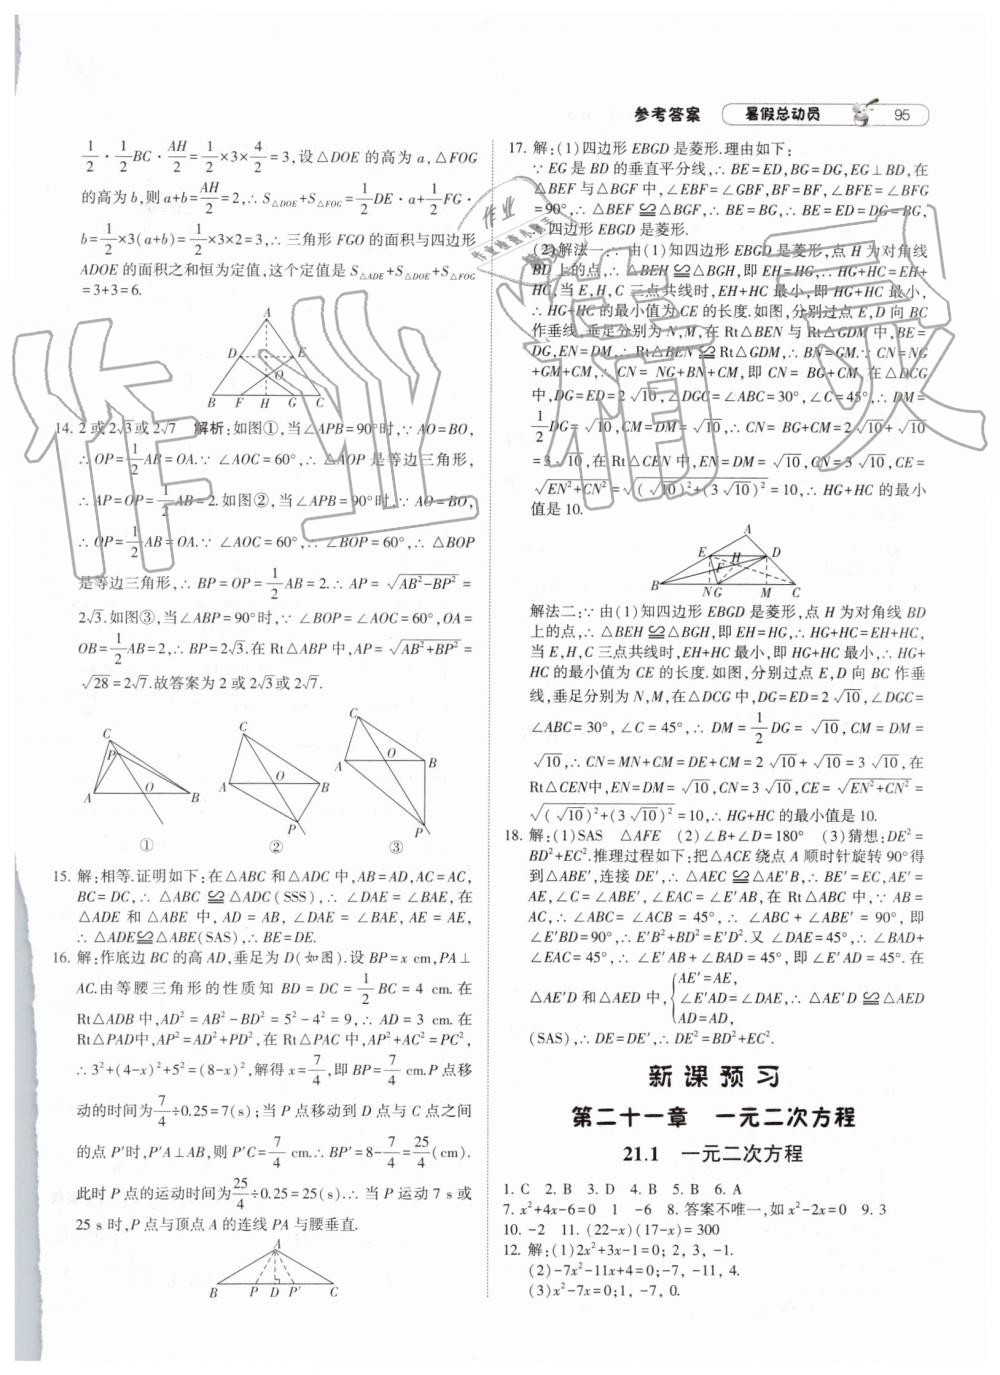 参考答案 暑假总动员 95
1/2·1/2BC·AH/2=1/2×3×4/2=3,设△DOE 的高为 a,△FOG
的高为 b,则 a+b=AH/2=2,∴ S△DOE+S△FOG=1/2DE·a+1/2FG·
b=1/2×3(a+b)=1/2×3×2=3,∴ 三角形 FGO 的面积与四边形
ADOE 的面积之和恒为定值,这个定值是 S△ADE+S△DOE+S△FOG
=3+3=6.
A
D E
O
B F H G C
14. 2 或 2√3或 2√7 解析:如图①,当∠APB=90°时,∵ AO=BO,
∴ OP=1/2AB=OA.∵ ∠AOC=60°,∴ △AOP 是等边三角形,
∴ AP=OP=1/2AB=2.如图②,当∠APB=90°时,∵ AO=BO,
∴ OP=1/2AB=OA.∵ ∠AOC=60°,∴ ∠BOP=60°,∴ △BOP
是等边三角形,∴ BP=OP=1/2AB=2.∴ AP=√(AB²-BP²)=
2√3.如图③,当∠ABP=90°时,∵ ∠BOP=∠AOC=60°,OA=
OB=1/2AB=2,∴ BP=2√3.在 Rt△ABP 中,AP=√(AB²+BP²)=
√28=2√7.故答案为 2 或 2√3或 2√7.
C P A O B ①
C A O B P ②
C A O B P ③
15. 解:相等.证明如下:在△ABC 和△ADC 中,AB=AD,AC=AC,
BC=DC,∴ △ABC≌△ADC(SSS),∴ ∠DAE=∠BAE,在
△ADE 和△ABE 中,AD=AB,∠DAE=∠BAE,AE=AE,
∴ △ADE≌△ABE(SAS),∴ BE=DE.
16. 解:作底边 BC 的高 AD,垂足为 D(如图).设 BP=x cm,PA⊥
AC.由等腰三角形的性质知 BD=DC=1/2BC=4 cm.在
Rt△ADB 中,AD²=AB²-BD²=5²-4²=9,∴ AD=3 cm.在
Rt△PAD中,AP²=AD²+PD²,在 Rt△PAC 中,AP²+AC²=PC²,
∴ 3²+(4-x)²+5²=(8-x)²,解得 x=7/4,即 BP=7/4cm.P 点移
动的时间为7/4÷0.25=7(s);当 P 点移动到 D 点与 C 点之间
的点 P′时,P′A⊥AB,则 P′C=7/4 cm.∴ BP′=8-7/4=25/4(cm).
此时 P 点的运动时间为25/4÷0.25=25(s).∴ 当 P 运动 7 s 或
25 s时,P 点与顶点 A 的连线 PA 与腰垂直.
A
B P D P′ C
17. 解:(1)四边形 EBGD 是菱形.理由如下:
∵ EG 是 BD 的垂直平分线,∴ BE=ED,BG=DG,EG⊥BD,在
△BEF 与△BGF 中,∠EBF=∠GBF,BF=BF,∠BFE=∠BFG
=90°,∴ △BEF≌△BGF,∴ BE=BG,∴ BE=ED=DG=BG,
∴ 四边形 EBGD 是菱形.
(2)解法一:∵ 由(1)知四边形 EBGD 是菱形,点 H 为对角线
BD 上的点,∴ △BEH≌△BGH,即 EH=HG,∴ HG+HC=EH+
HC,当 E,H,C 三点共线时,EH+HC 最小,即 HG+HC 最小,
∴ HG+HC 的最小值为 CE 的长度.如图,分别过点 E,D 向 BC
作垂线,垂足分别为 N,M,在 Rt△BEN 与 Rt△GDM 中,BE=
DG,EN=DM,∴ Rt△BEN≌Rt△GDM,∴ BN=GM.∵ CN=NG
+GM+CM,∴ CN=NG+BN+CM,即 CN=BG+CM.在△DCG
中,DG=ED=2√10,∠DGC=∠ABC=30°,∠C=45°,∴ DM=
1/2DG=√10,CM=DM=√10,∴ CN=BG+CM=2√10+√10
=3√10,在 Rt△CEN 中,EN=DM=√10,CN=3√10,CE=
√(EN²+CN²)=√((√10)²+(3√10)²)=10,∴ HG+HC 的最小
值是 10.
A
E H D
F
B N G M C
解法二:∵ 由(1)知四边形 EBGD 是菱形,点 H 为对角线 BD
上的点,∴ △BEH≌△BGH,即 EH=HG,∴ HG+HC=EH+HC,
当 E,H,C 三点共线时,EH+HC 最小,即 HG+HC 最小,∴ HG+
HC 的最小值为 CE 的长度.如图,分别过点 E,D 向 BC 作垂
线,垂足分别为 N,M,在△DCG 中,DG=ED=2√10,∠DGC=
∠ABC=30°,∠C=45°,∴ DM=1/2DG=√10,CM=DM=
√10,∴ CN=MN+CM=DE+CM=2√10+√10=3√10,在
Rt△CEN中,EN=DM=√10,CN=3√10,CE=√(EN²+CN²)=
√((√10)²+(3√10)²)=10,∴ HG+HC 的最小值是 10.
18. 解:(1)SAS △AFE (2)∠B+∠D=180° (3)猜想:DE²=
BD²+EC².推理过程如下:把△ACE 绕点 A 顺时针旋转 90°得
到△ABE′,连接 DE′,∴ △AEC≌△AE′B,∴ BE′=EC,AE′=
AE,∠C=∠ABE′,∠EAC=∠E′AB,在 Rt△ABC 中,∵ AB=
AC,∴ ∠ABC=∠ACB=45°,∴ ∠ABC+∠ABE′=90°,即
∠E′BD=90°,∴ E′B²+BD²=E′D².又∠DAE=45°,∴ ∠BAD+
∠EAC=45°,∴ ∠E′AB+∠BAD=45°,即∠E′AD=45°.在
△AE′D 和△AED 中,{AE′=AE, ∠E′AD=∠DAE, AD=AD, ∴ △AE′D≌△AED
(SAS),∴ DE=DE′,∴ DE²=BD²+EC².
新课预习
第二十一章 一元二次方程
21.1 一元二次方程
1. C 2. B 3. D 4. B 5. B 6. A
7. x²+4x-6=0 1 -6 8. 答案不唯一,如 x²-2x=0 9. 3
10. -2 11. (22-x)(17-x)=300
12. 解:(1)2x²+3x-1=0; 2, 3, -1.
(2)-7x²-11x+4=0;-7, -11, 4.
(3)x²-7x=0;1, -7, 0.
作业精灵